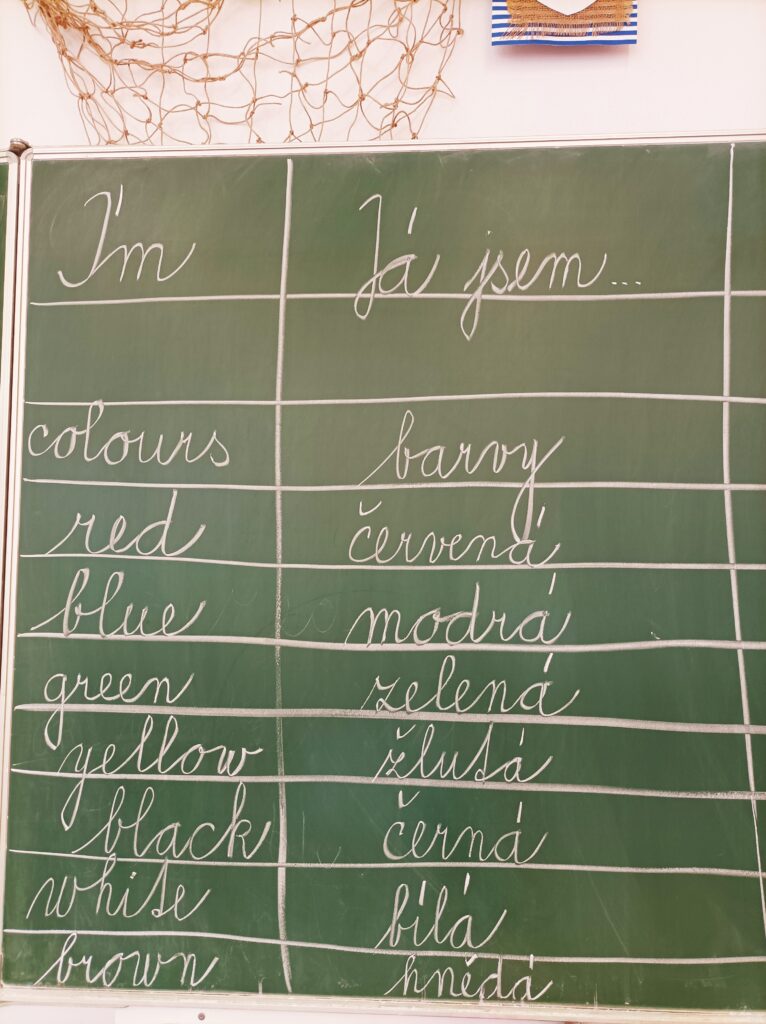 I'm Já jsem...
colours barvy
red červená
blue modrá
green zelená
yellow žlutá
black černá
white bílá
brown hnědá